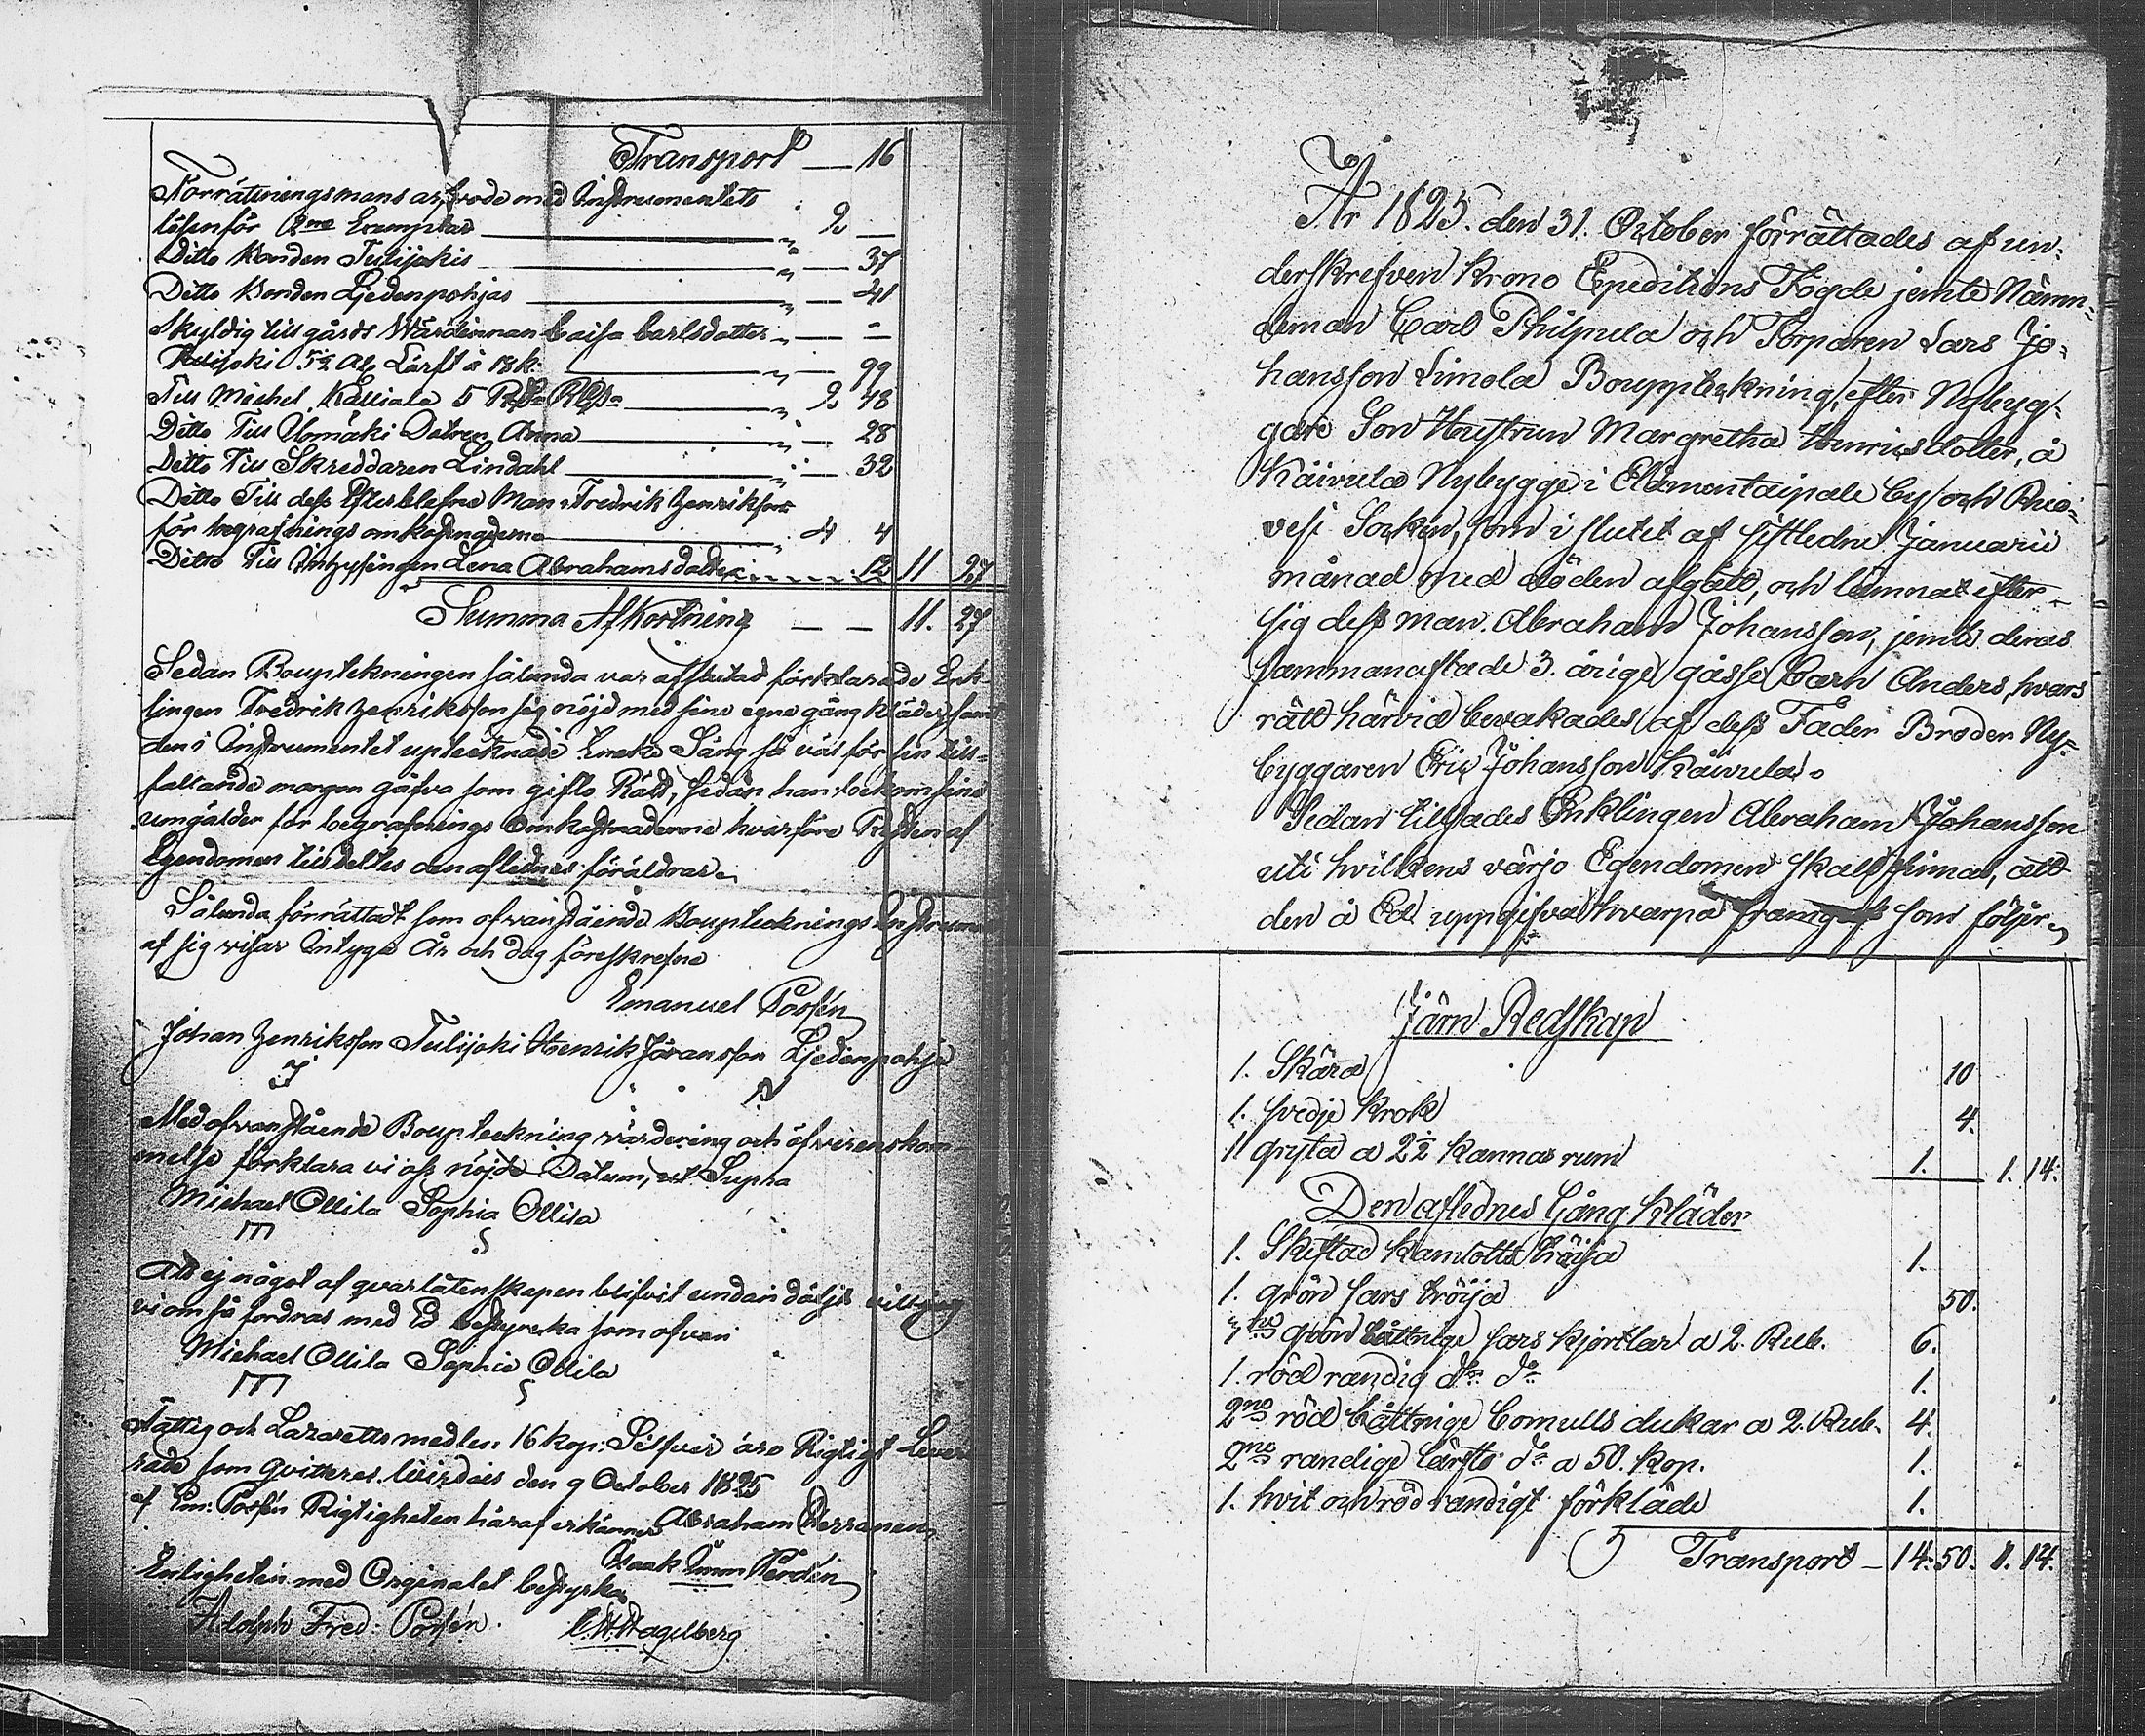 Transport — 16
Förrättningsmans arfvode med Instrumentets
lösen för 2ne Exemplar 2 —
Ditto Bonden Tulijokis — 37
Ditto Bonden Ljedenpohjas — 41
Skyldig till gårds Wärdinnan Caisa Carlsdotter — —
Tulijoki 5½ Al. Lärft à 18 k. — 99
Till Michel Kalliala 5 2 48
Ditto Till Dotren Anna — 28
Ditto Till Skreddaren Lindahl — 32
Ditto Till dess Efterblefne Man Fredrik Henriksson
för begrafnings omkostnaderne 4 4
Ditto Till Lena Abrahamsdotter 12 11 27
Summa Afkortning — — 11. 27
Sedan Bouptekningen sålunda var afslutad förklarade Enk-
lingen Fredrik Henriksson sig nöjd med sine egne gång kläder, samt
den i Instrumentet uptecknade Säng så väl för sin till-
fallande morgon gåfva som gifto Rätt, sedan han bekom sine
umgälder för begrafnings omkostnaderne hvarföre Resten af
Egendomen tilldeltes den aflednes föräldrar.
Sålunda förrättadt som ofvanstående Bouptecknings Instrument
af sig visar Intyga År och dag föreskrefne
Emanuel Possén
Johan Henriksson Tulijoki Henrik Jöransson Ljedenpohja
Med ofvanstående Boupteckning värdering och öfverenskom-
melse förklara vi oss nöjde Datum, ut Supra
Michael Ollila Sophia Ollila
m S
Att ej något af qvarlåtenskapen blifvit undan döljt vilja
vi om så fordras med Ed bestyrcka som ofvan
Michael Ollila Sophia Ollila
m S
Fattig och Lazaretts medlen 16 kop: Silfver äro Rigtigt Leve-
rade som qvitteras. den 9 October 1825
af Em: Possén Rigtigheten häraf erkänner Abraham
Isaak Simon
Enligheten med Orginalet bestyrka
Adolph Fred: Possén. Hagelberg
År 1825. den 31. October förrättades af un-
derskrefven Krono Expeditions Fogde jemte Nämn-
deman Carl Philpula och Torparen Lars Jo-
hansson Simola Bouppteckning, efter Nybyg-
gare Son Hustrun Margretha Henricsdotter, å
Käivulä Nybygge i Elämäntaipale by och Rio-
vesi Socken, som i slutet af sistledne Januarii
månad med döden afgått, och lämnat efter
sig dess man Abraham Johansson, jemte deras
sammanaflade 3. årige gosse Barn Anders, hvars
rätt härvid bevakades af dess Fader Broder Ny-
byggaren Eric Johansson Käivulä.
Sedan tillsades Enklingen Abraham Johansson
uti hvilkens värjo Egendomen skall finnas, att
den å Ed uppgifva hvarpå framgafs som följer
Järn Redskap
1. Skära 10
1. svedje krok 4.
1 gryta a 2½ kannas rum 1. 1. 14.
Den aflednes Gång Kläder
1. Skiftad Kamlotts tröija 1.
1. grön sars tröija 50.
3ne grön bottnige sars kjortlar a 2. Rub. 6.
1. röd randig do do 1.
2ne röd bottnige bomulls dukar a 2. Rub. 4.
2ne randige lärfts do a 50. kop. 1.
1. hvit och röd randigt förkläde 1.
Transport — 14. 50. 1. 14.